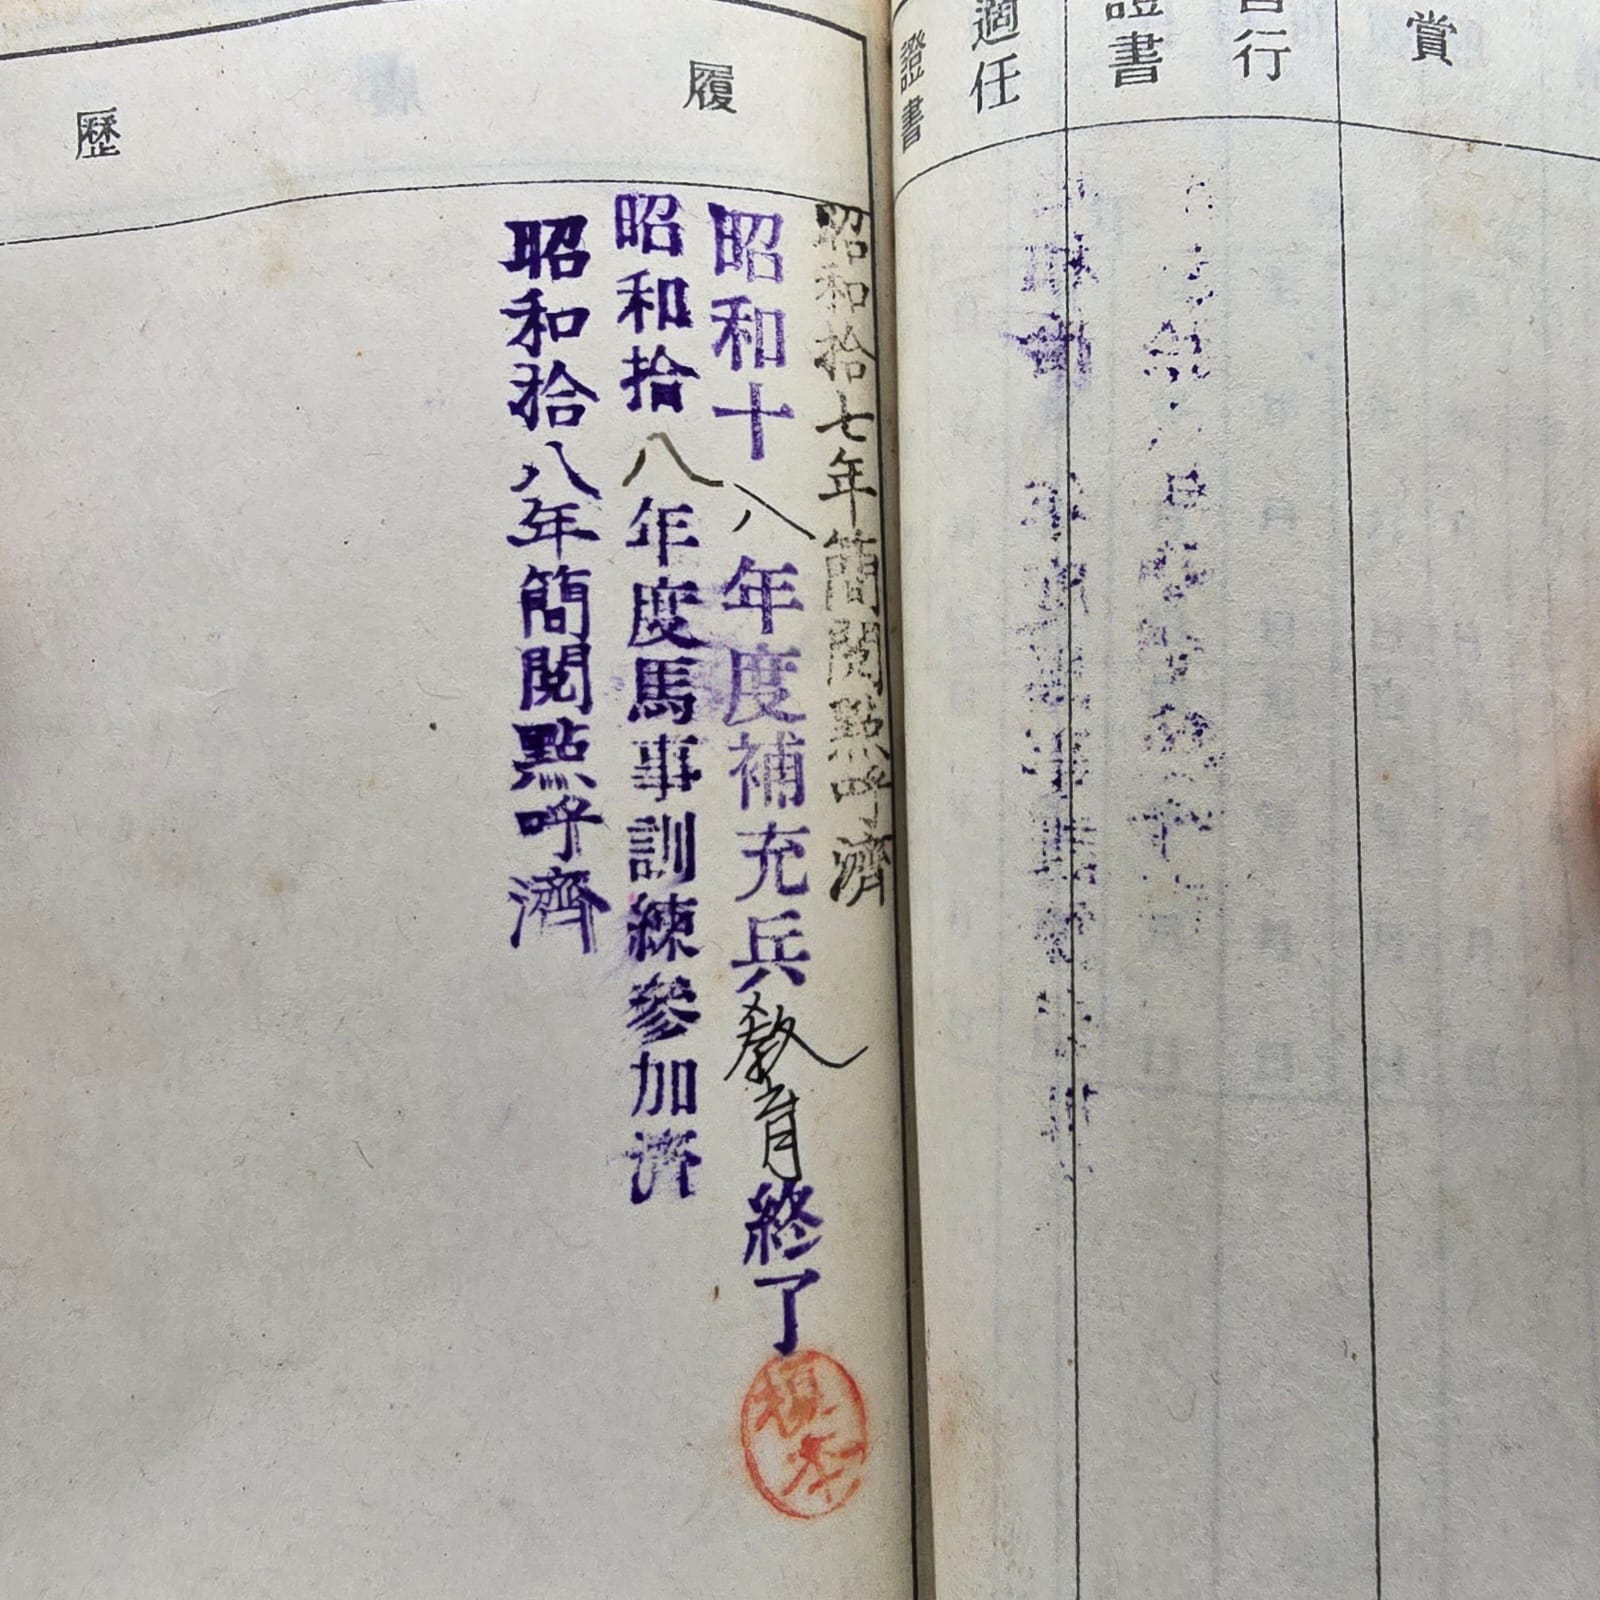 賞
善行
證書
適任
證書
履歴
昭和拾七年簡閲點呼濟
昭和十八年度補充兵教育終了
昭和拾八年度馬事訓練参加濟
昭和拾八年簡閲點呼濟